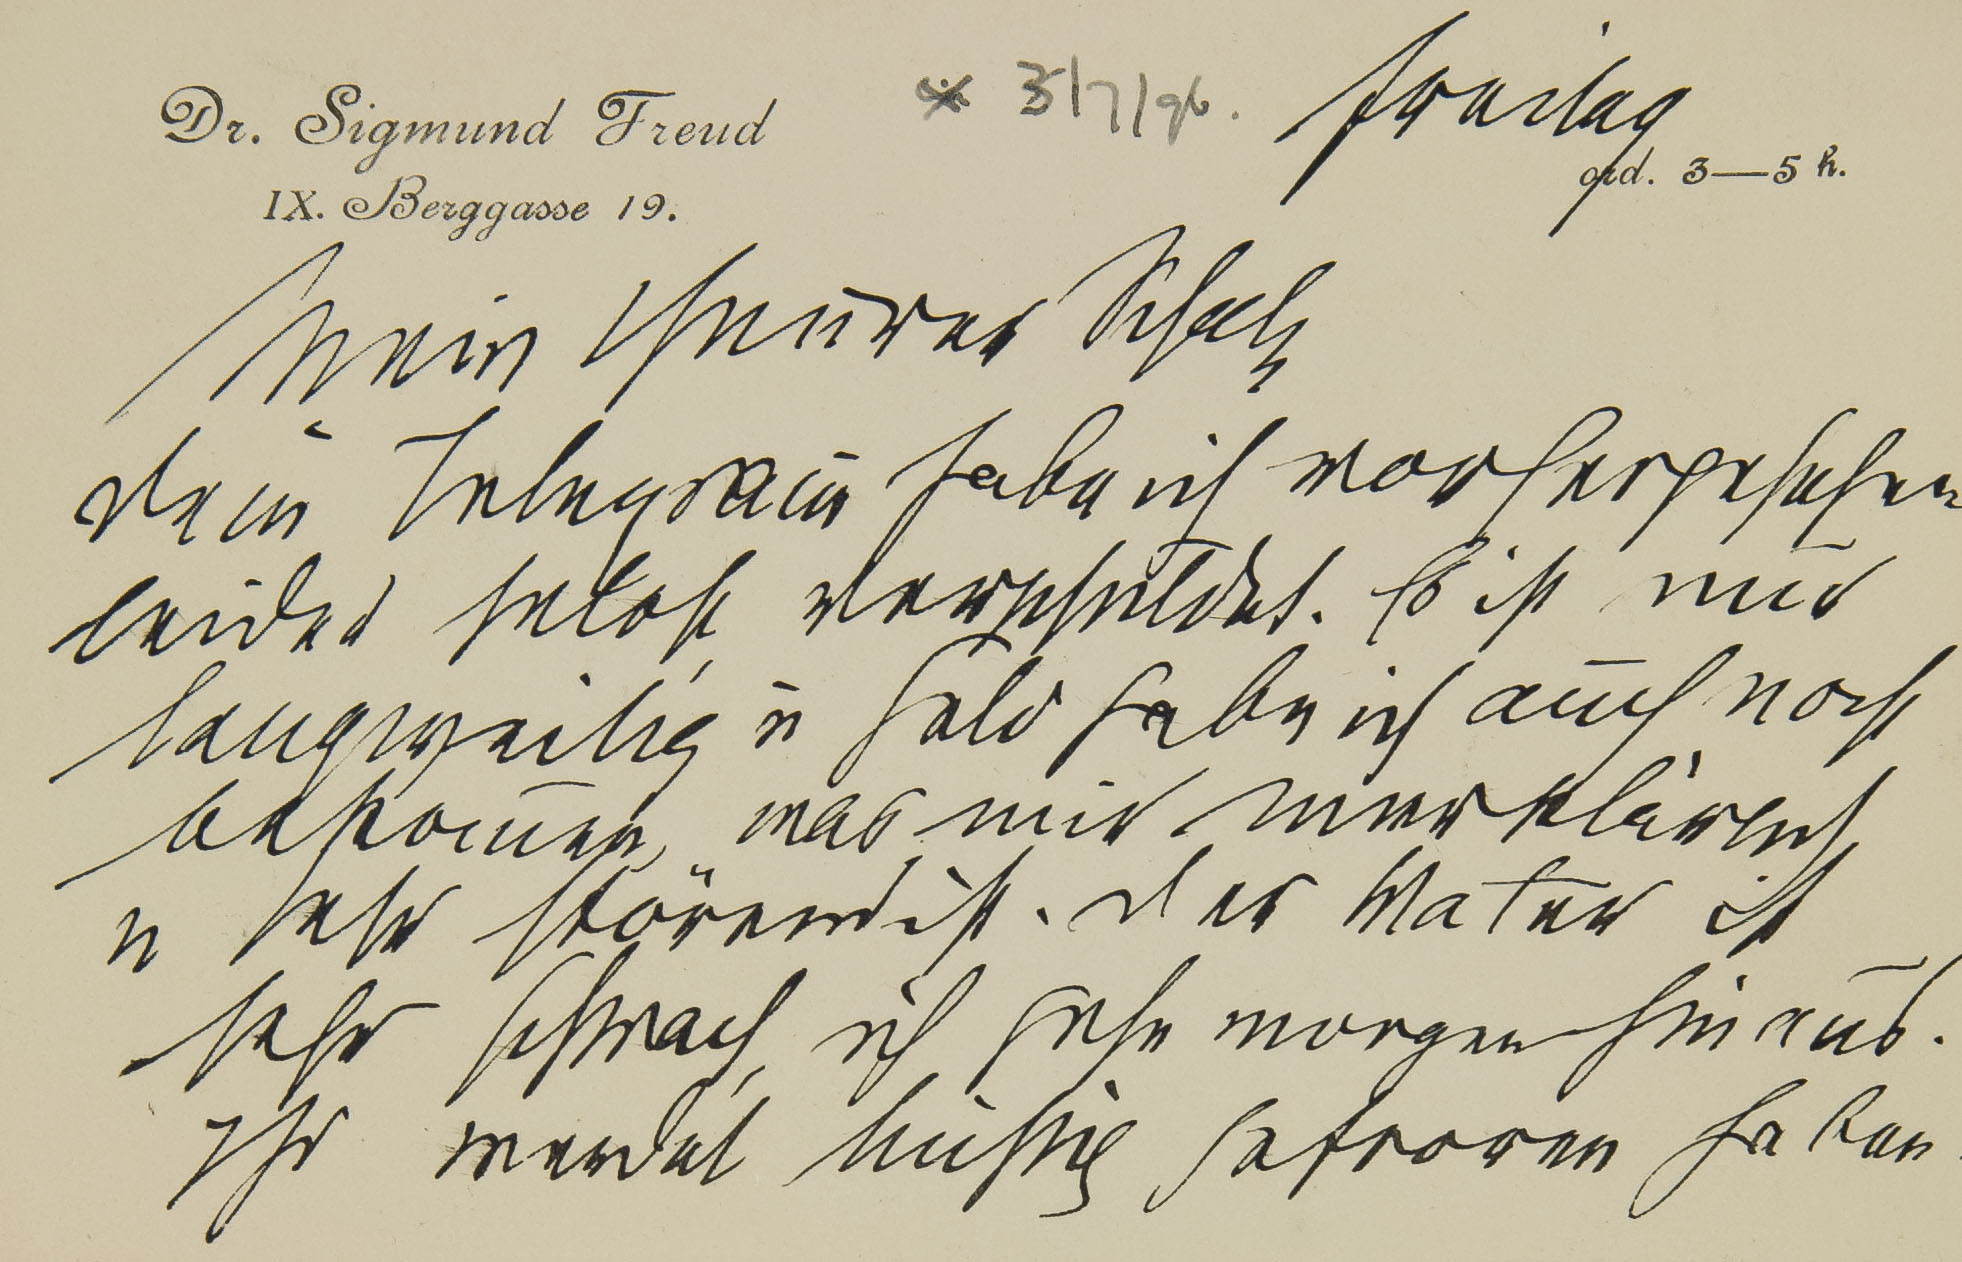 Dr. Sigmund Freud
* 3/7/96.
Freitag
IX. Berggasse 19.
ord. 3—5 h.
Mein theurer Schatz
Dein Telegram̅ habe ich vorhergesehen
leider selbst verschuldet. Es ist nur
langweilig u Geld habe ich auch noch
bekom̅en, was mir unerklärlich
u sehr störend ist. Der Vater ist
sehr schwach, ich gehe morgen hinaus.
Ihr werdet tüchtig gefroren haben.